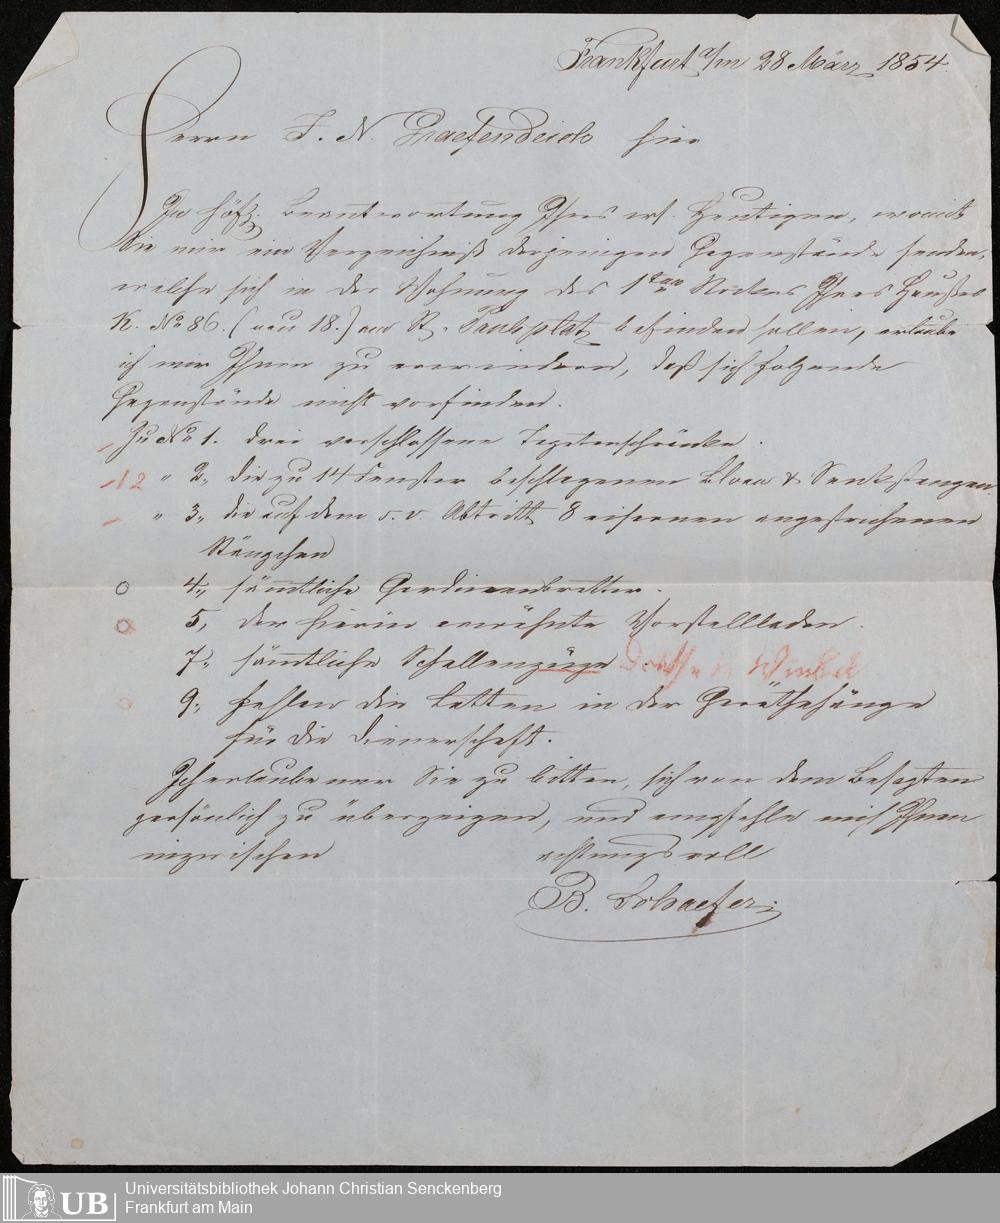 Frankfurt a/m 28 März 1854.
Herrn J. N. Graefendeich hier
In höfl. Beantwortung Ihres w. Heutigen, womit
Sie mir ein Verzeichniß derjenigen Gegenstände senden,
welche sich in der Wohnung des 1ten Stockes Ihres Hauses
K. No 86. (neu 18.) am Paulsplatz befinden sollen, erlaube
ich mir Ihnen zu erwiedern, daß sich folgende
Gegenstände nicht vorfinden.
Zu No 1. drei verschlossene
12 " 2, die zu 14 Fenster beschlagenen & Senkstangen
" 3, die auf dem Abtritt 8 eisernen angestrichenen
Stängchen
4, sämtliche Gardinenbretter.
5, der hierin erwähnte Vorstellladen.
7, sämtliche Schellenzüge
9, fehlen die Latten in der Geräthehänge
für die Dienerschaft.
Ich erlaube mir Sie zu bitten, sich von dem Besagten
persönlich zu überzeigen, und empfehle mich Ihnen
inzwischen achtungsvoll
B. Schaefer
Universitätsbibliothek Johann Christian Senckenberg
UB Frankfurt am Main